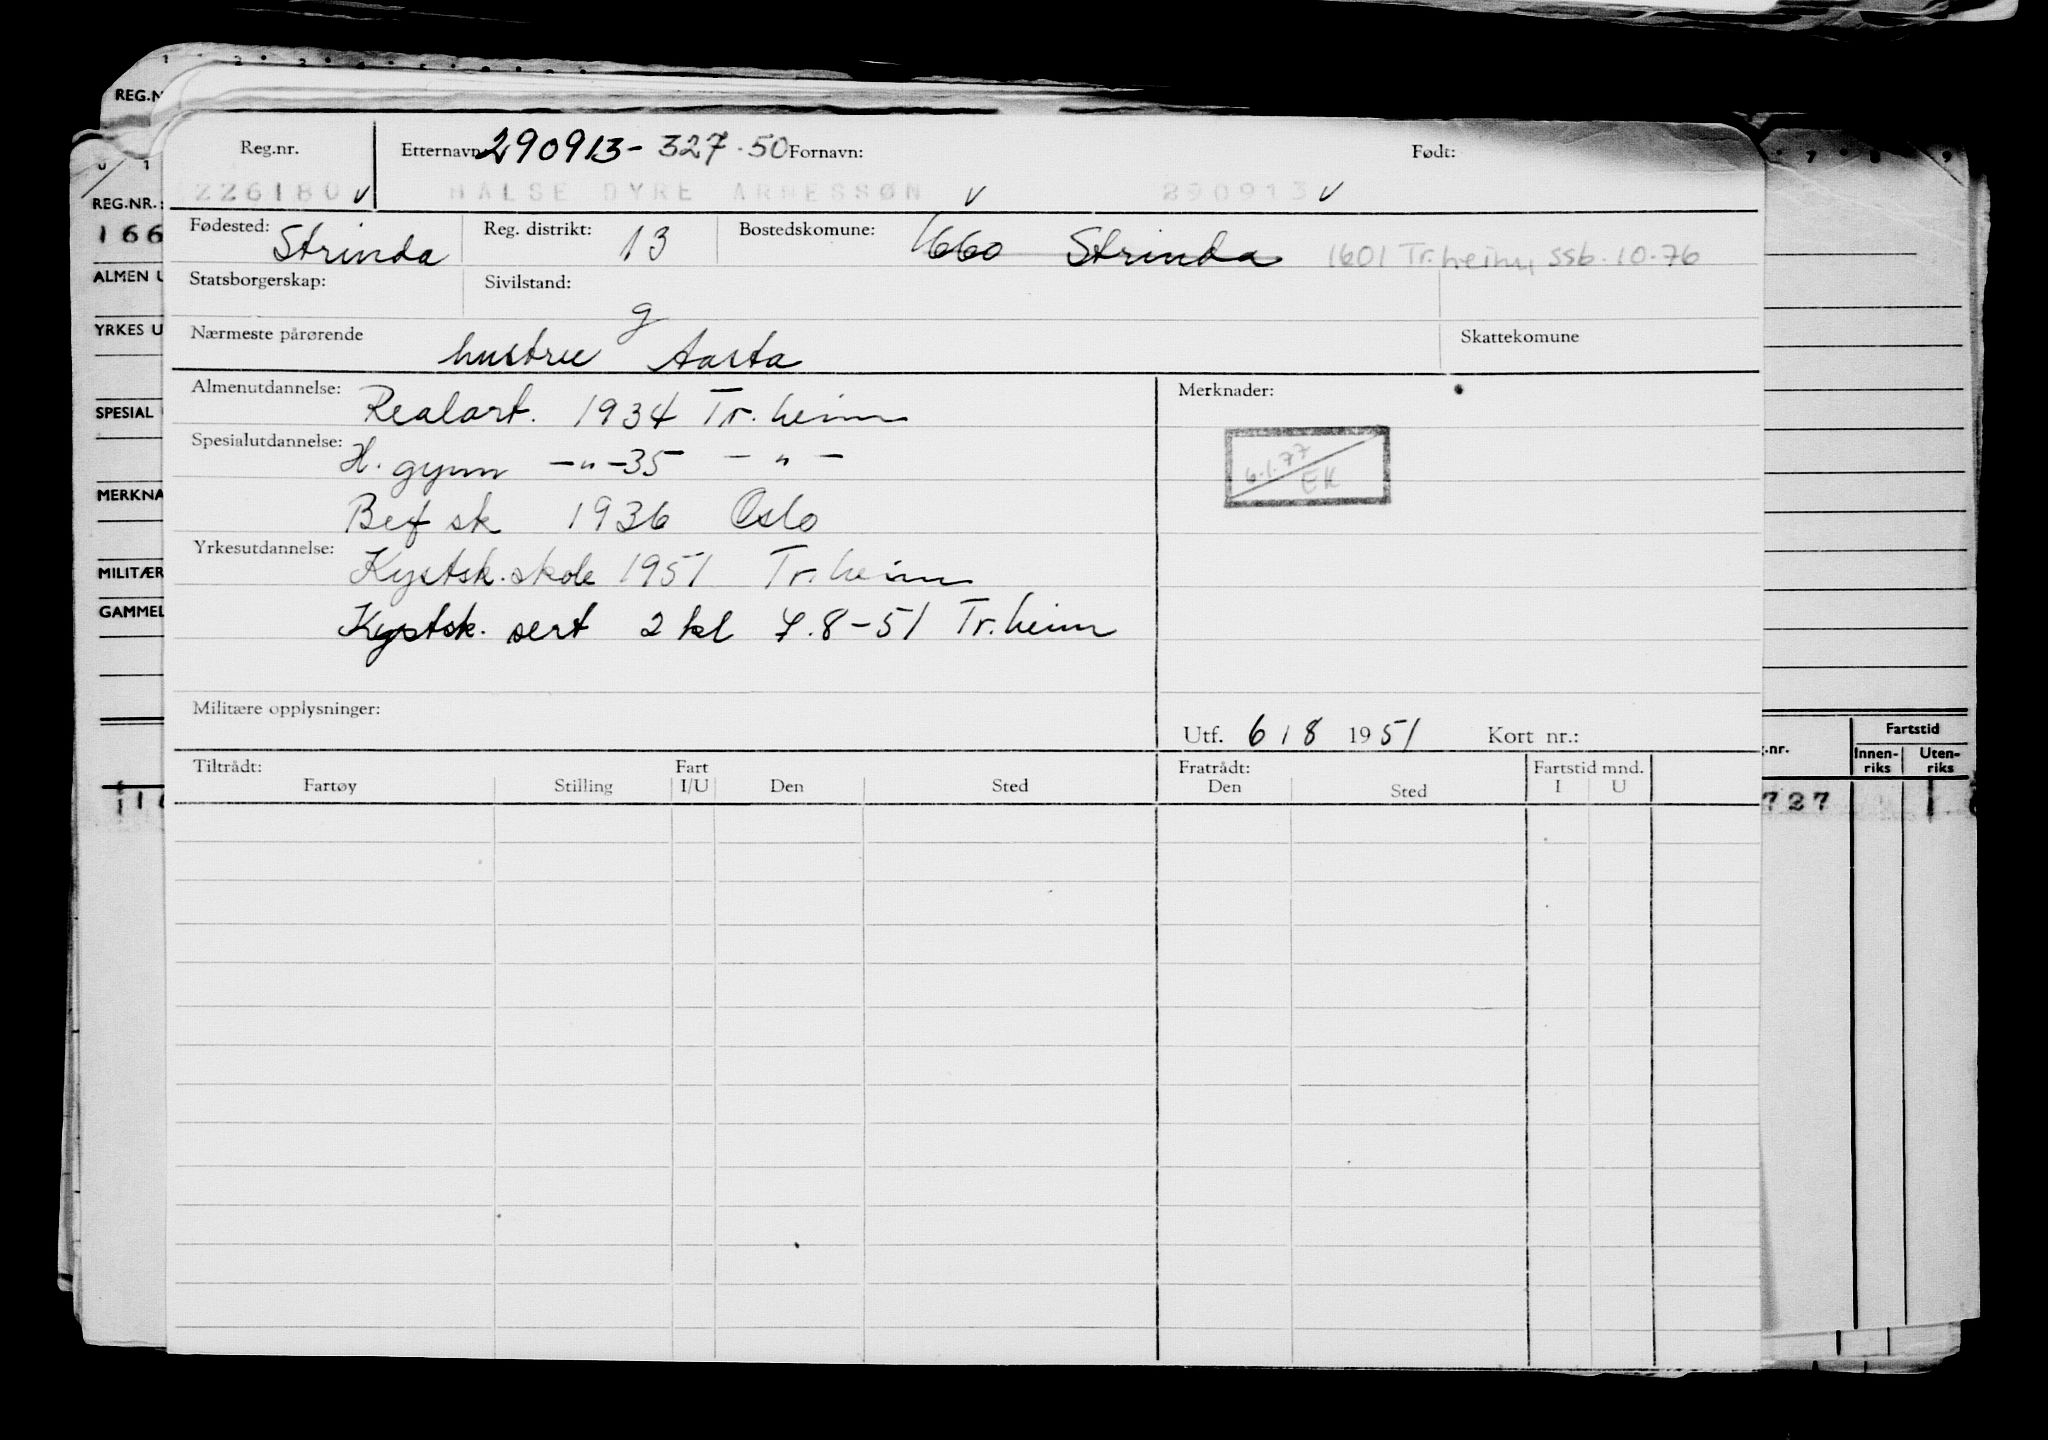 1 2 3 4 5 6
REG.N
Reg.nr. Etternavn 290913- 327.50 Fornavn: Født:
226180 v HALSE DYRE ARNESSØN v 290913 v
0 1 7 8 9
REG.NR.:
166
Fødested: Strinda Reg. distrikt: 13 Bostedskomune: 1660 Strinda 1601 Tr.heim, ssb. 10-76
ALMEN U Statsborgerskap: Sivilstand: g
YRKES U Nærmeste pårørende hustru Aasta Skattekomune
Almenutdannelse: Realart. 1934 Tr. heim Merknader:
SPESIAL
Spesialutdannelse: H. gymn -"-35 - " -
6.1.77
EK
MERKNA
Bef sk 1936 Oslo
Yrkesutdannelse: Kystsk. skole 1951 Tr.heim
MILITÆR
GAMMEL
Kystsk. sert 2 kl 7.8-51 Tr.heim
Militære opplysninger:
Utf. 6 / 8 1951 Kort nr.:
.nr. Fartstid
Innen-riks Uten-riks
Tiltrådt: Fart Fratrådt: Fartstid mnd.
Fartøy Stilling I/U Den Sted Den Sted I U
11 727 1.